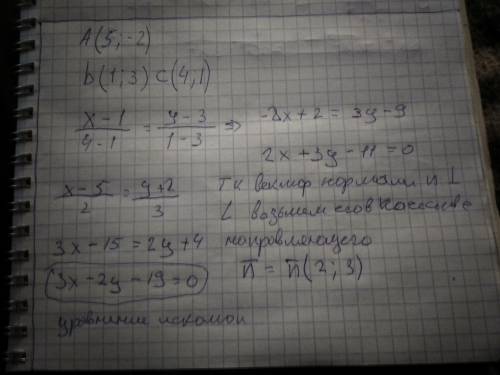 A(5;-2)
b(1;3) c(4;1)
x-1/4-1 = y-3/1-3 ⇒ -2x+2=3y-9
2x+3y-11=0
x-5/2 = y+2/3 Тк вектор нормали n ⊥
L возьмем его в качестве
3x-15=2y+4 направляющего
3x-2y-19=0 n̅ = n̅(2;3)
уровнение искомой